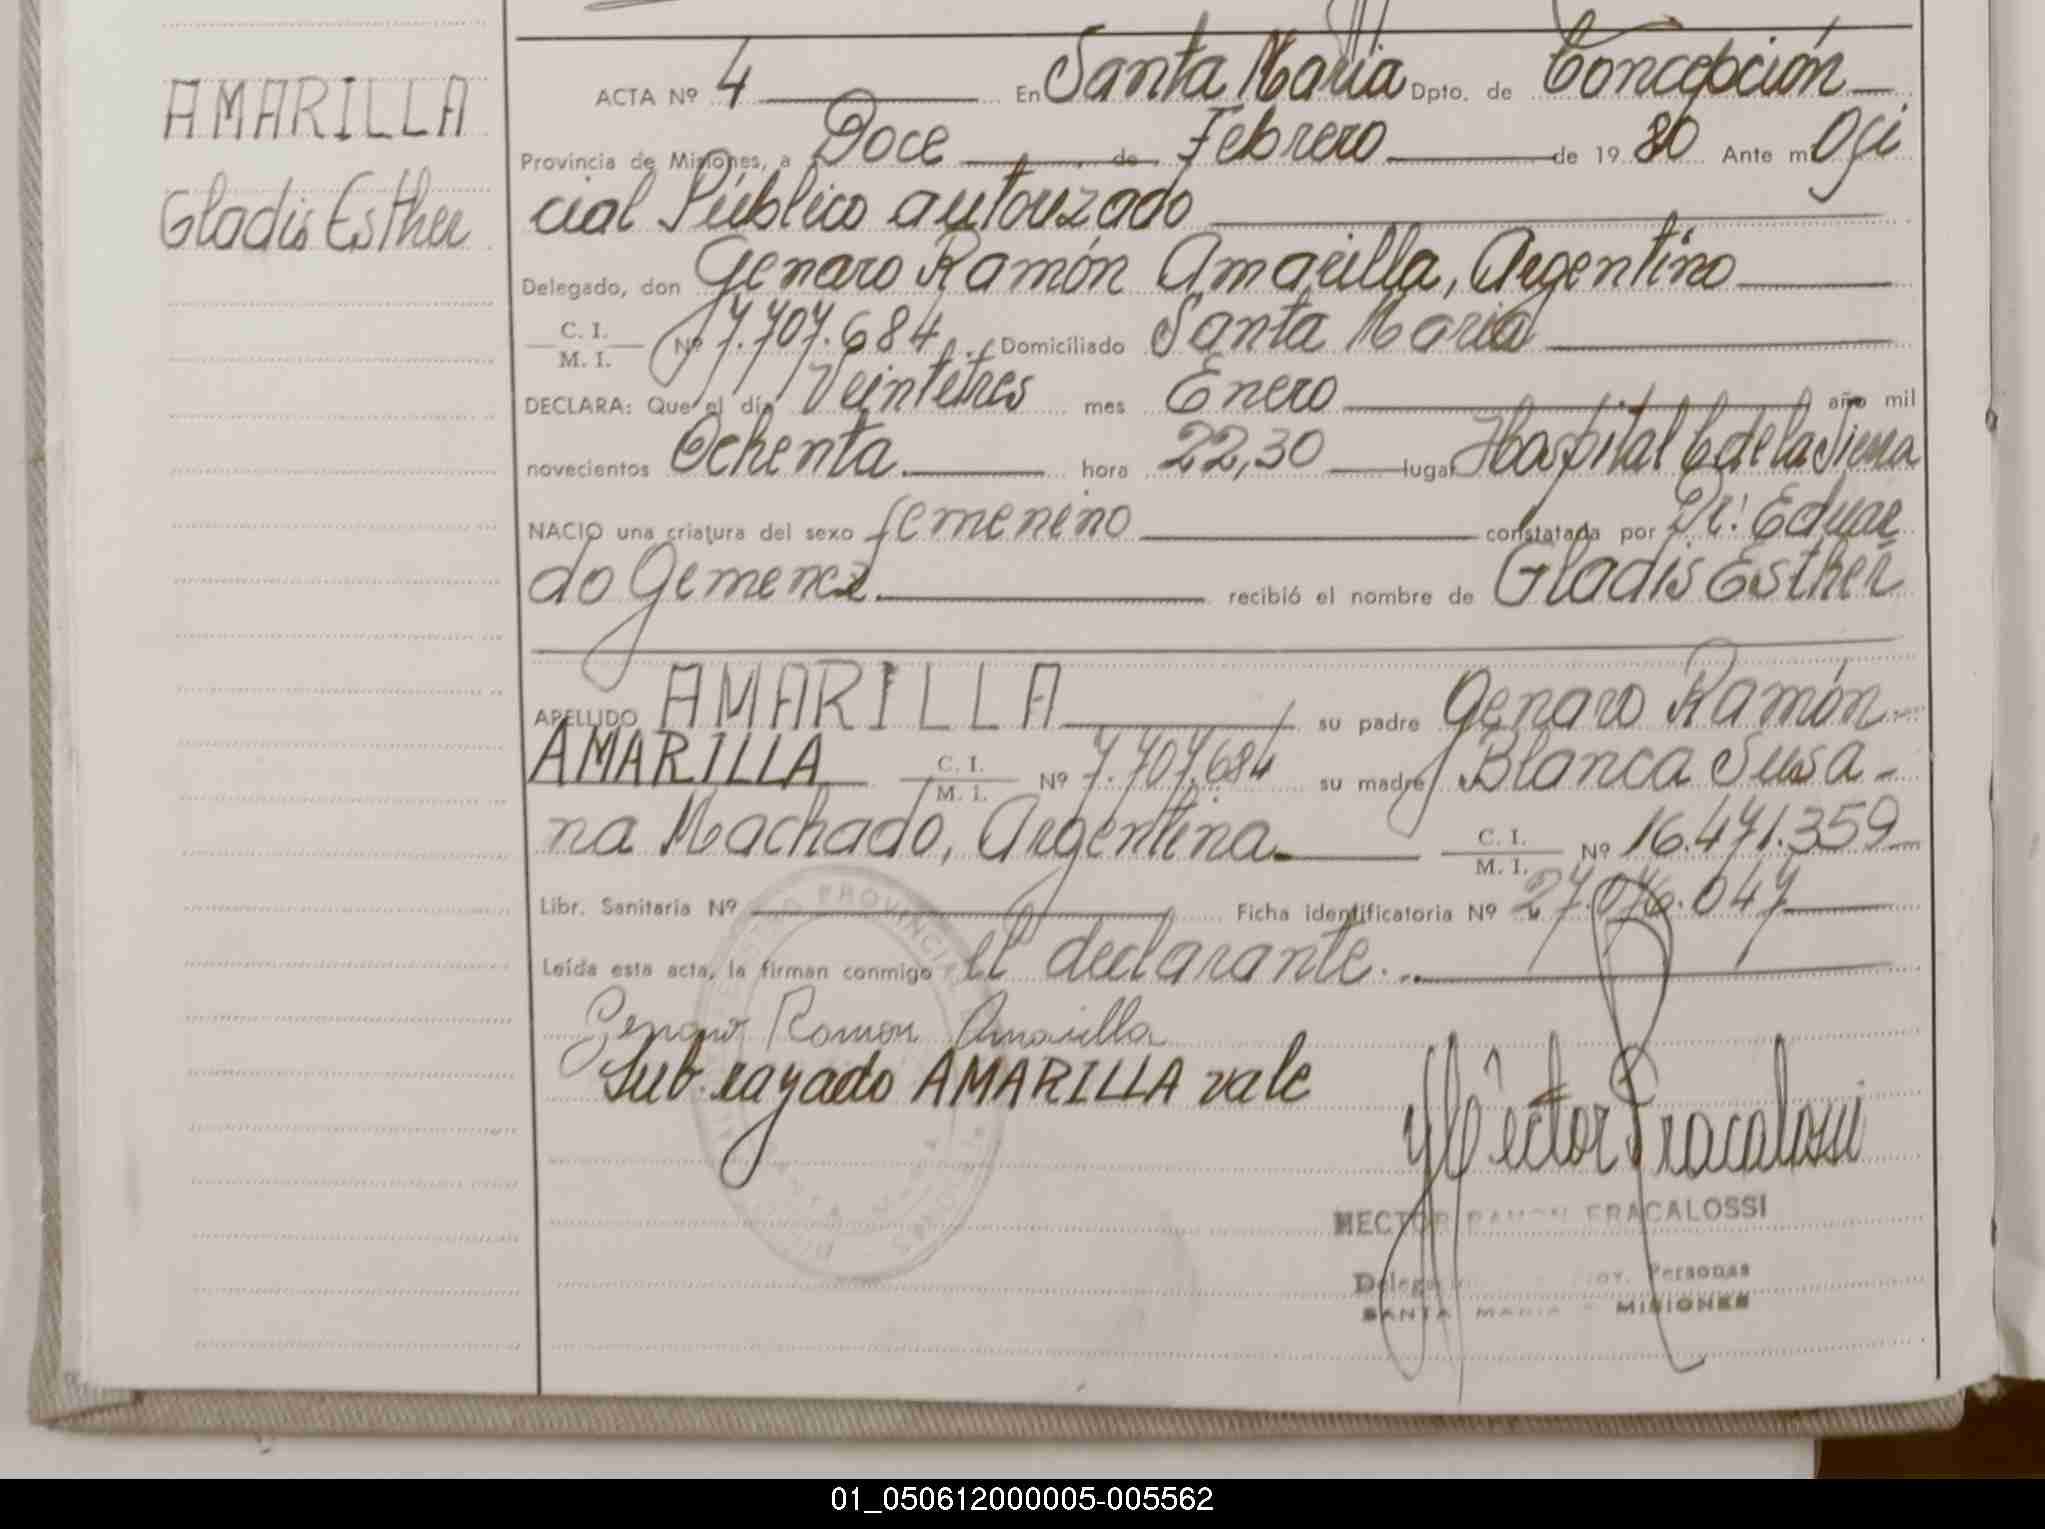 AMARILLA
Gladis Esther
ACTA Nº 4 En Santa Maria Dpto. de Concepción
Provincia de Misiones, a Doce de Febrero de 1980 Ante mi Ofi
cial Público autorizado
Delegado, don Genaro Ramón Amarilla, Argentino
C. I.
M. I. Nº 7.707.684 Domiciliado Santa Maria
DECLARA: Que el día Veintetres mes Enero año mil
novecientos Ochenta hora 22,30 lugar Hospital C de la Sierra
NACIO una criatura del sexo femenino constatada por Dr: Eduar
do Gemenez recibió el nombre de Gladis Esther
APELLIDO AMARILLA su padre Genaro Ramón
AMARILLA C. I.
M. I. Nº 7.707.684 su madre Blanca Susa-
na Machado, Argentina C. I.
M. I. Nº 16.471.359
Libr. Sanitaria Nº Ficha identificatoria Nº 27.076.047
Leída esta acta, la firman conmigo el declarante.
Genaro Ramon Amarilla
Sub.rayado AMARILLA vale
Hector Fracalossi
HECTOR RAMON FRACALOSSI
Prov. Personas
SANTA MARIA - MISIONES
01_050612000005-005562